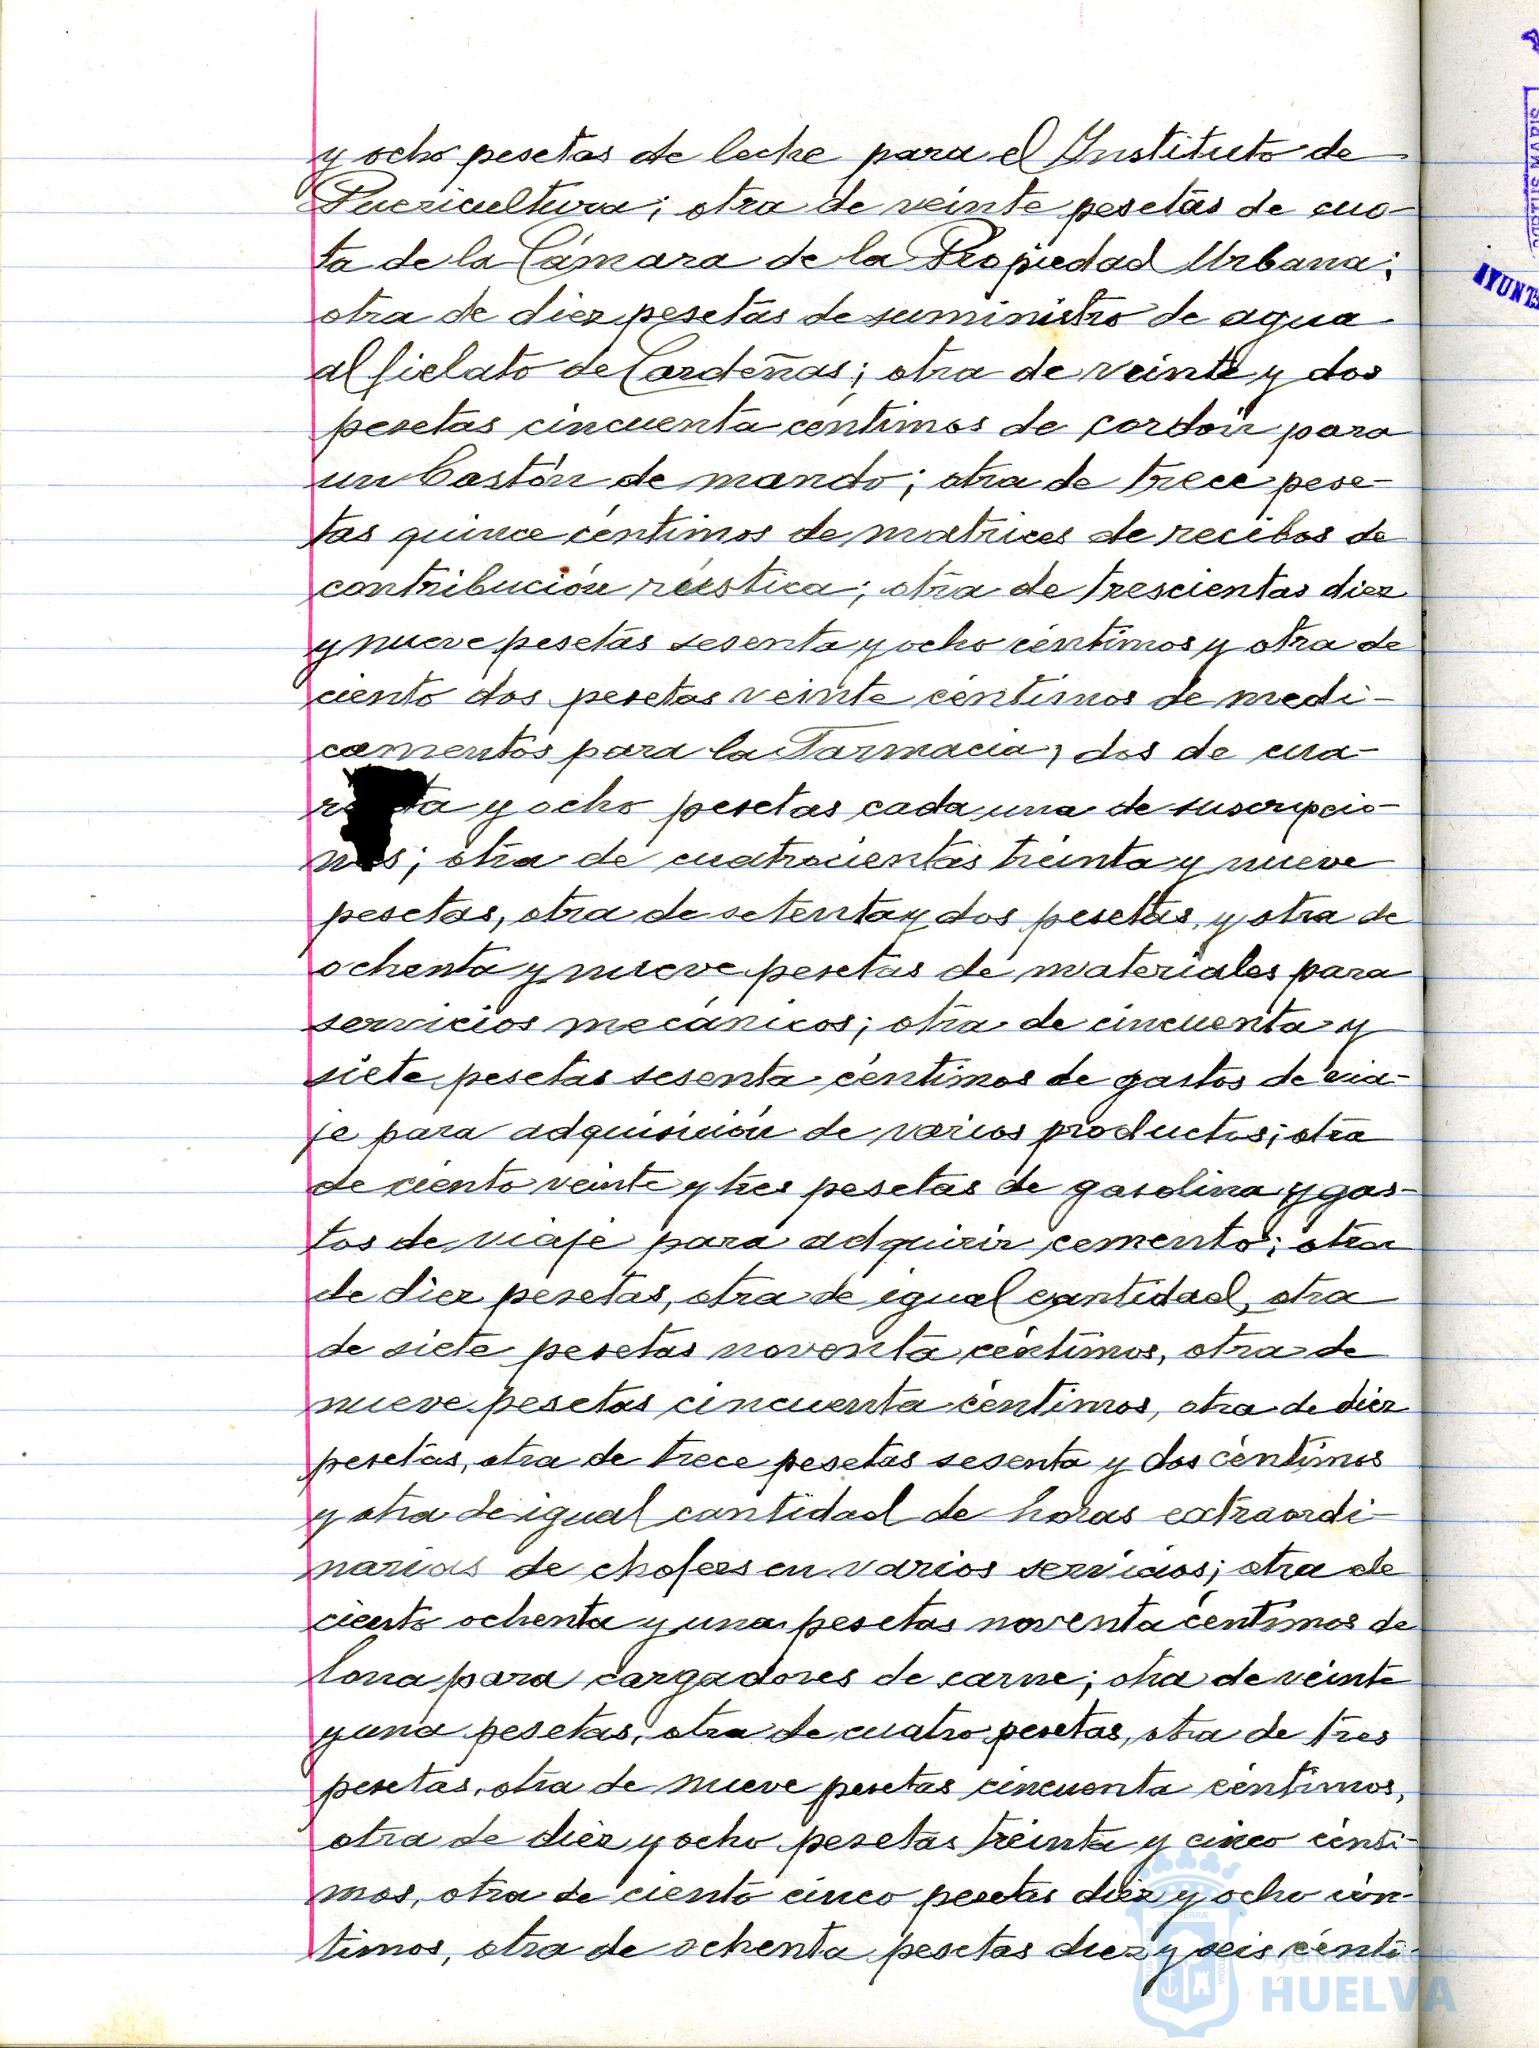 y ocho pesetas de leche para el Instituto de
Puericultura; otra de veinte pesetas de cuo-
ta de la Cámara de la Propiedad Urbana;
otra de diez pesetas de suministro de agua
al fielato de Cardeñas; otra de veinte y dos
pesetas cincuenta céntimos de cordón para
un bastón de mando; otra de trece pese-
tas quince céntimos de matrices de recibos de
contribución rústica; otra de trescientas diez
y nueve pesetas sesenta y ocho céntimos y otra de
ciento dos pesetas veinte céntimos de medi-
camentos para la Farmacia, dos de cua-
ta y ocho pesetas cada una de suscripcio-
s; otra de cuatrocientas treinta y nueve
pesetas, otra de setenta y dos pesetas, y otra de
ochenta y nueve pesetas de materiales para
servicios mecánicos; otra de cincuenta y
siete pesetas sesenta céntimos de gastos de via-
je para adquisición de varios productos; otra
de ciento veinte y tres pesetas de gasolina y gas-
tos de viaje para adquirir cemento; otra
de diez pesetas, otra de igual cantidad, otra
de siete pesetas noventa céntimos, otra de
nueve pesetas cincuenta céntimos, otra de diez
pesetas, otra de trece pesetas sesenta y dos céntimos
y otra de igual cantidad de horas extraordi-
narias de chofers en varios servicios; otra de
ciento ochenta y una pesetas noventa céntimos de
lona para cargadores de carne; otra de veinte
y una pesetas, otra de cuatro pesetas, otra de tres
pesetas, otra de nueve pesetas cincuenta céntimos,
otra de diez y ocho pesetas treinta y cinco cénti-
mos, otra de ciento cinco pesetas diez y ocho cén-
timos, otra de ochenta pesetas diez y seis cénti-
Ayuntamiento de
HUELVA
PORTUS MARIS
AYUNT